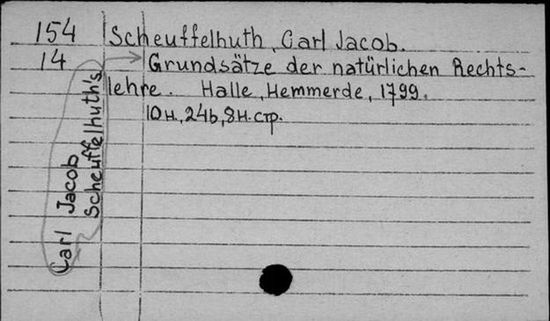 154 Scheuffelhuth, Carl Jacob.
14 Grundsätze der natürlichen Rechts-
lehre. Halle, Hemmerde, 1799.
10н., 246, 8н. стр.
Carl Jacob
Scheuffelhuth's